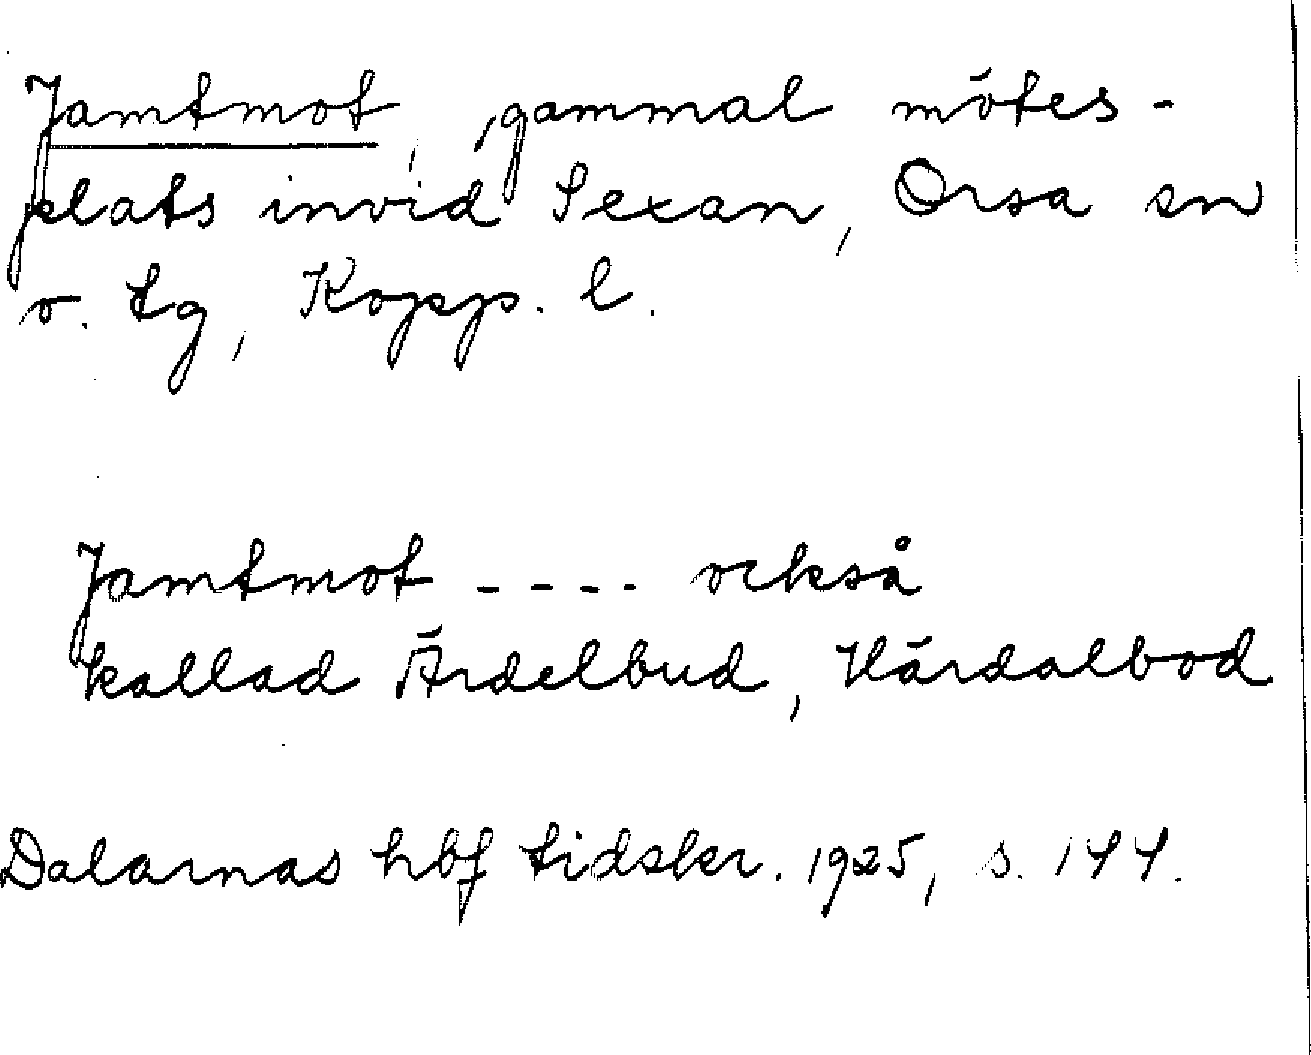 Jamtmot, gammal mötes-
plats invid Sexan, Orsa sn
o. tg, Kopp. l.
Jamtmot ---- också
kallad Ärdelbud, Härdalbod
Dalarnas hbf tidskr. 1925, s. 144.